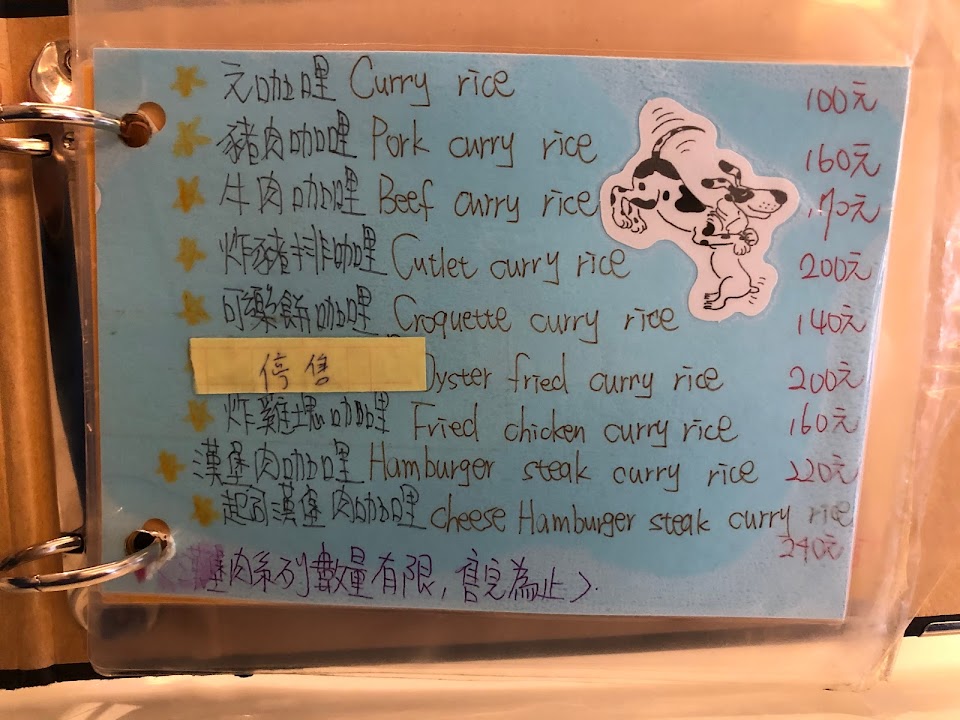 元咖哩 Curry rice 100元
豬肉咖哩 Pork curry rice 160元
牛肉咖哩 Beef curry rice 170元
炸豬排咖哩 Cutlet curry rice 200元
可樂餅咖哩 Croquette curry rice 140元
停售 Oyster fried curry rice 200元
炸雞塊咖哩 Fried chicken curry rice 160元
漢堡肉咖哩 Hamburger steak curry rice 220元
起司漢堡肉咖哩 cheese Hamburger steak curry rice
240元
漢堡肉系列數量有限,售完為止